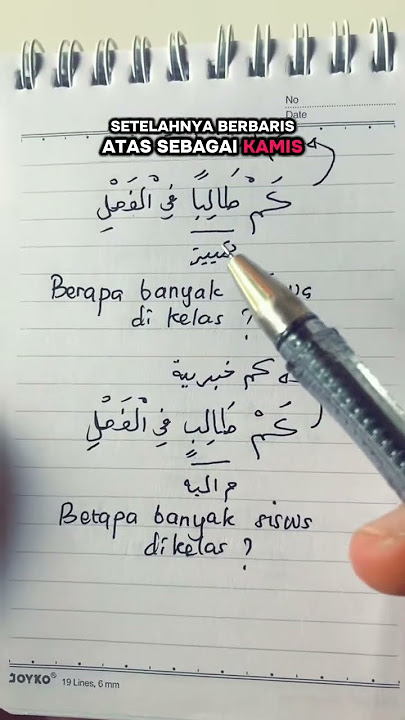 No
Date
SETELAHNYA BERBARIS
ATAS SEBAGAI KAMIS
كَمْ طَالِبًا فِي الْفَصْلِ
تمييز
Berapa banyak
di kelas ?
كم خبرية
كَمْ طَالِبٍ فِي الْفَصْلِ
م اليه
Betapa banyak sisws
dikelas ?
JOYKO® 19 Lines, 6 mm